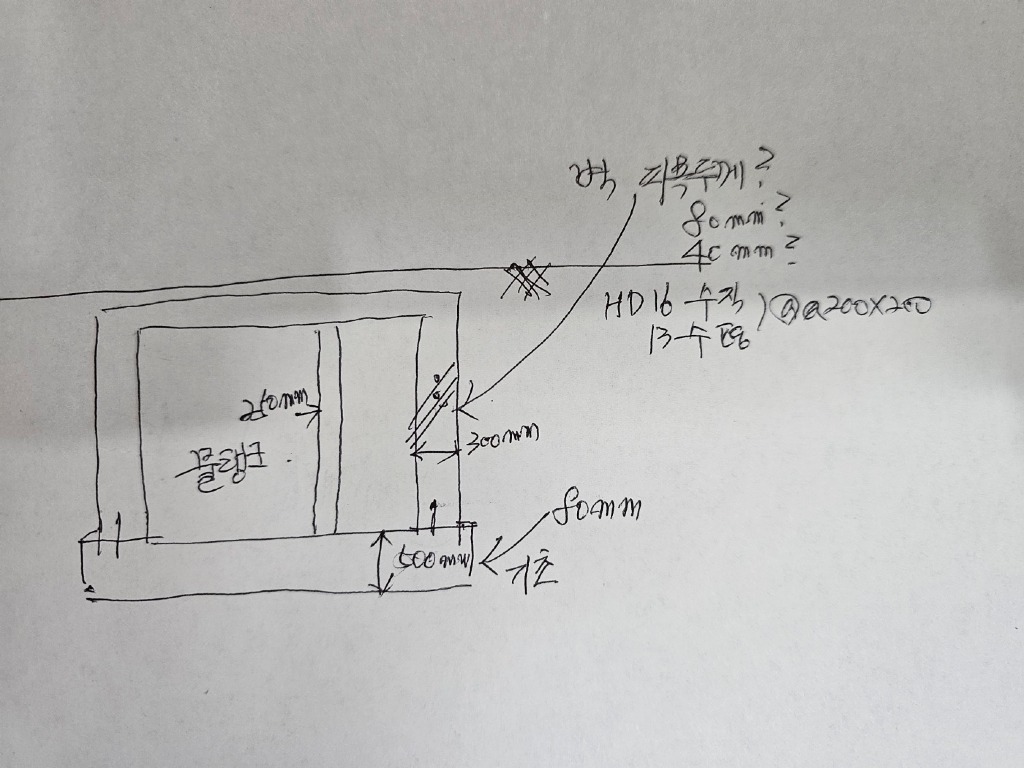 벽 피복두께?
80mm?
40mm?
HD16 수직
13 수평
@200x200
250mm
물탱크
300mm
80mm
500mm
기초